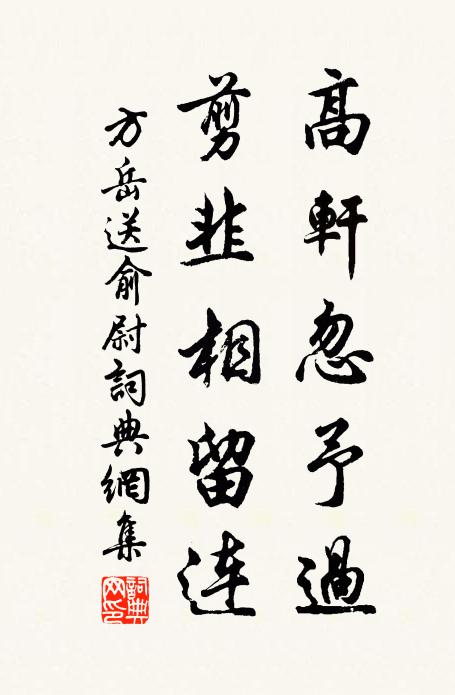 高軒忽予過
剪韭相留連
方岳送俞尉詞典網集
詞典網印